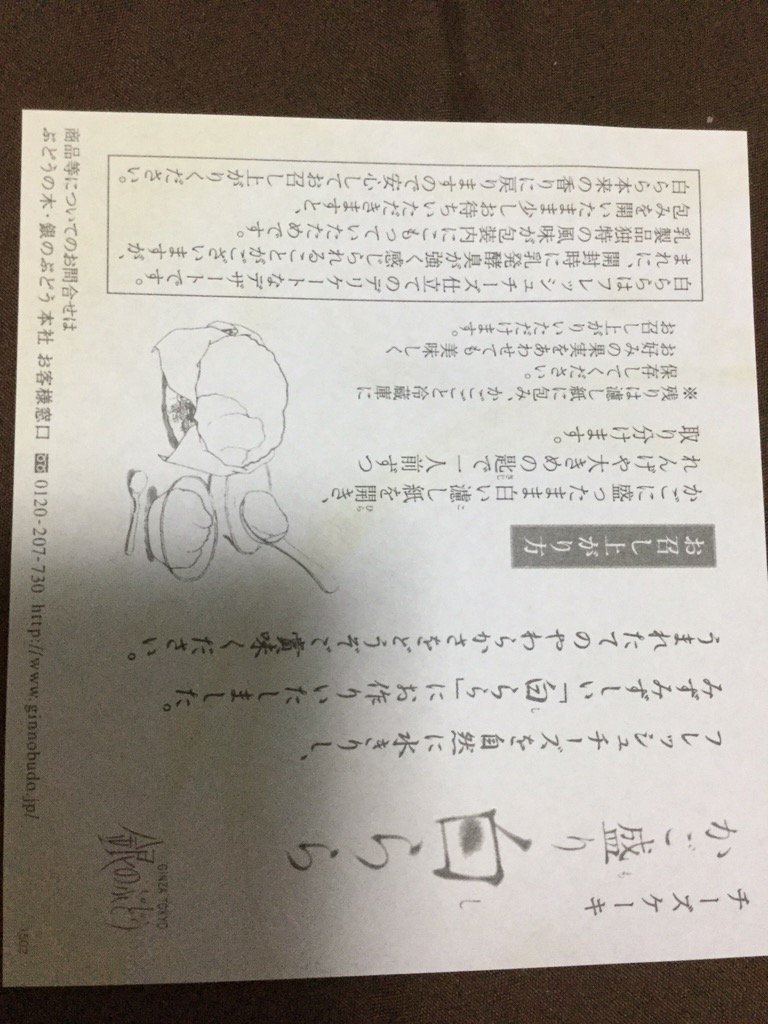 チーズケーキ
かご盛り
白らら
フレッシュチーズを自然に水きりし、
みずみずしい「白らら」にお作りいたしました。
うまれたてのやわらかさをどうぞご賞味ください。
お召し上がり方
かごに盛ったまま白い濾し紙を開き、
れんげや大きめの匙で一人前ずつ
取り分けます。
※残りは濾し紙に包み、かごごと冷蔵庫に
保存してください。
お好みの果実をあわせても美味しく
お召し上がりいただけます。
白ららはフレッシュチーズ仕立てのデリケートなデザートです。
まれに、開封時に乳発酵臭が強く感じられることがございますが
乳製品独特の風味が包装内にこもっていたためです。
包みを開いたまま少しお待ちいただきますと、
白らら本来の香りに戻りますので安心してお召し上がりください。
銀のぶどう
GINZA TOKYO
商品等についてのお問合せは
ぶどうの木・銀のぶどう 本社 お客様窓口 0120-207-730 http://www.ginnobudo.jp/